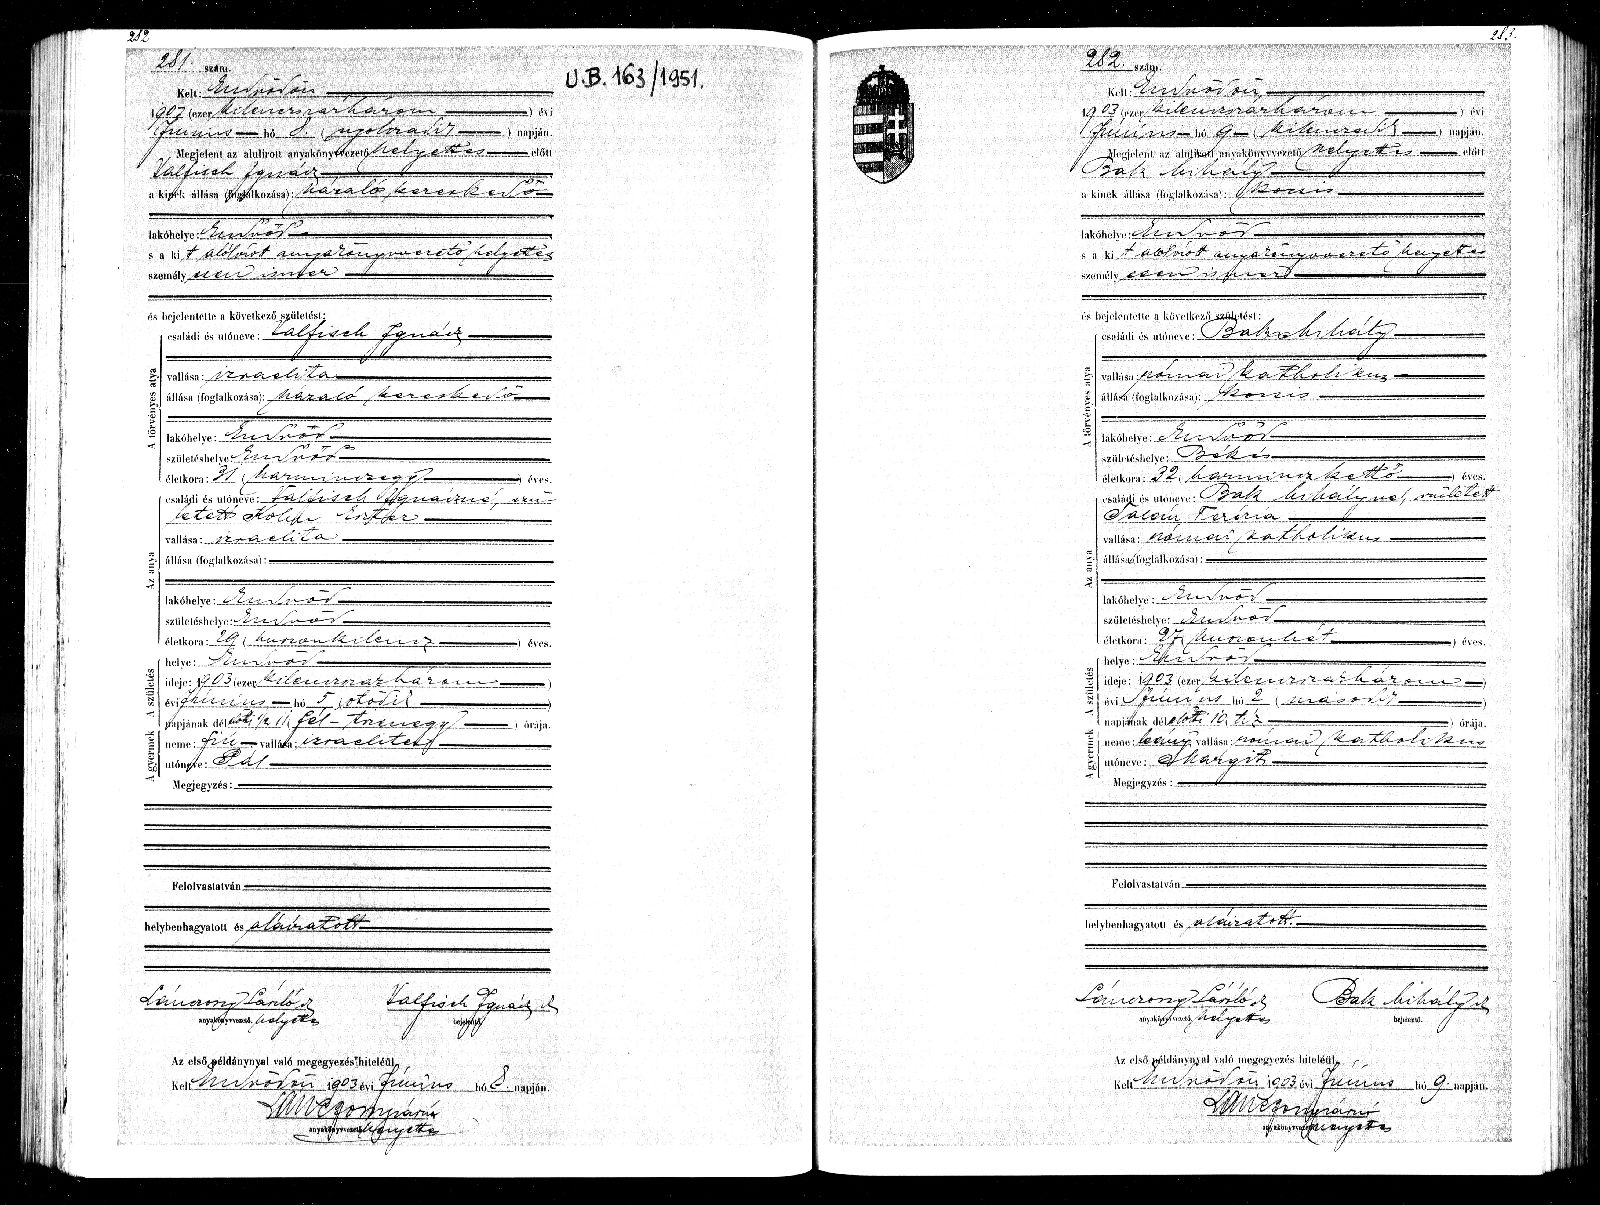 282
281. szám.
U.B. 163/1951.
Kelt: Endrődön
1903 (ezer kilenczszázhárom) évi
Június hó 8. (nyolczadik) napján.
Megjelent az alulirott anyakönyvvezető helyettes előtt
Valfisch Ignácz
a kinek állása (foglalkozása):
lakóhelye: Endrőd
s a kit alólírott anyakönyvvezető helyettes
személyesen ismer
és bejelentette a következő születést:
A törvényes atya
családi és utóneve: Valfisch Ignácz
vallása: izraelita
állása (foglalkozása):
lakóhelye: Endrőd
születéshelye: Endrőd
életkora: 31 (harminczegy) éves.
Az anya
családi és utóneve: Valfisch Ignáczné, szü-
letett Kohn Eszter
vallása: izraelita
állása (foglalkozása):
lakóhelye: Endrőd
születéshelye: Endrőd
életkora: 29 (huszonkilencz) éves.
A születés
helye: Endrőd
ideje: 1903 (ezer kilenczszázhárom)
évi Június hó 5. (ötödik)
napjának délelőtti ½ 11 (fél-tizenegy) órája.
A gyermek
neme: fiú vallása: izraelita
utóneve: Pál
Megjegyzés:
Felolvastatván
helybenhagyatott és aláíratott
László
anyakönyvvezető. helyettes
Valfisch Ignácz
bejelentő.
Az első példánynyal való megegyezés hiteléül
Kelt Endrődön 1903 évi Június hó 8. napján.
anyakönyvvezető helyettes
283.
282. szám.
Kelt: Endrődön
1903 (ezer kilenczszázhárom) évi
Június hó 9 (kilenczedik) napján.
Megjelent az alulirott anyakönyvvezető helyettes előtt
Bak Mihály
a kinek állása (foglalkozása): kocsis
lakóhelye: Endrőd
s a kit alólírott anyakönyvvezető helyettes
személyesen ismer
és bejelentette a következő születést:
A törvényes atya
családi és utóneve: Bak Mihály
vallása: római katholikus
állása (foglalkozása): kocsis
lakóhelye: Endrőd
születéshelye: Békés
életkora: 32 (harminczkettő) éves.
Az anya
családi és utóneve: Bak Mihályné, született
Terézia
vallása: római katholikus
állása (foglalkozása):
lakóhelye: Endrőd
születéshelye: Endrőd
életkora: 27 (huszonhét) éves.
A születés
helye: Endrőd
ideje: 1903 (ezer kilenczszázhárom)
évi Június hó 2 (második)
napjának délelőtti 10. tíz órája.
A gyermek
neme: leány vallása: római katholikus
utóneve: Margit
Megjegyzés:
Felolvastatván
helybenhagyatott és aláíratott.
László
anyakönyvvezető. helyettes
Bak Mihály
bejelentő.
Az első példánynyal való megegyezés hiteléül
Kelt Endrődön 1903 évi Június hó 9 napján.
anyakönyvvezető helyettes